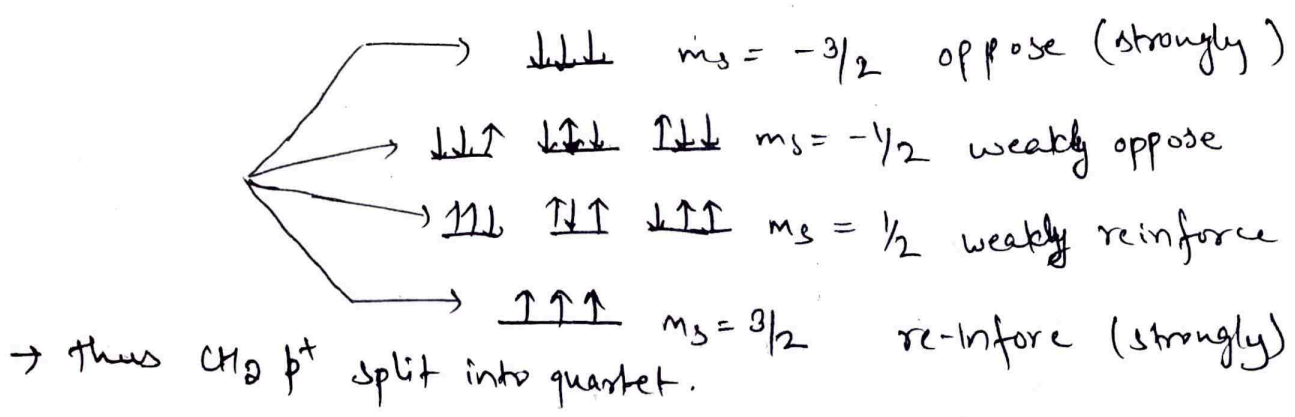 ↓↓↓ ms = -3/2 oppose (strongly)
↓↓↑ ↓↑↓ ↑↓↓ ms = -1/2 weakly oppose
↑↑↓ ↑↓↑ ↓↑↑ ms = 1/2 weakly reinforce
↑↑↑ ms = 3/2 re-Infore (strongly)
→ thus CH2 p+ split into quartet.